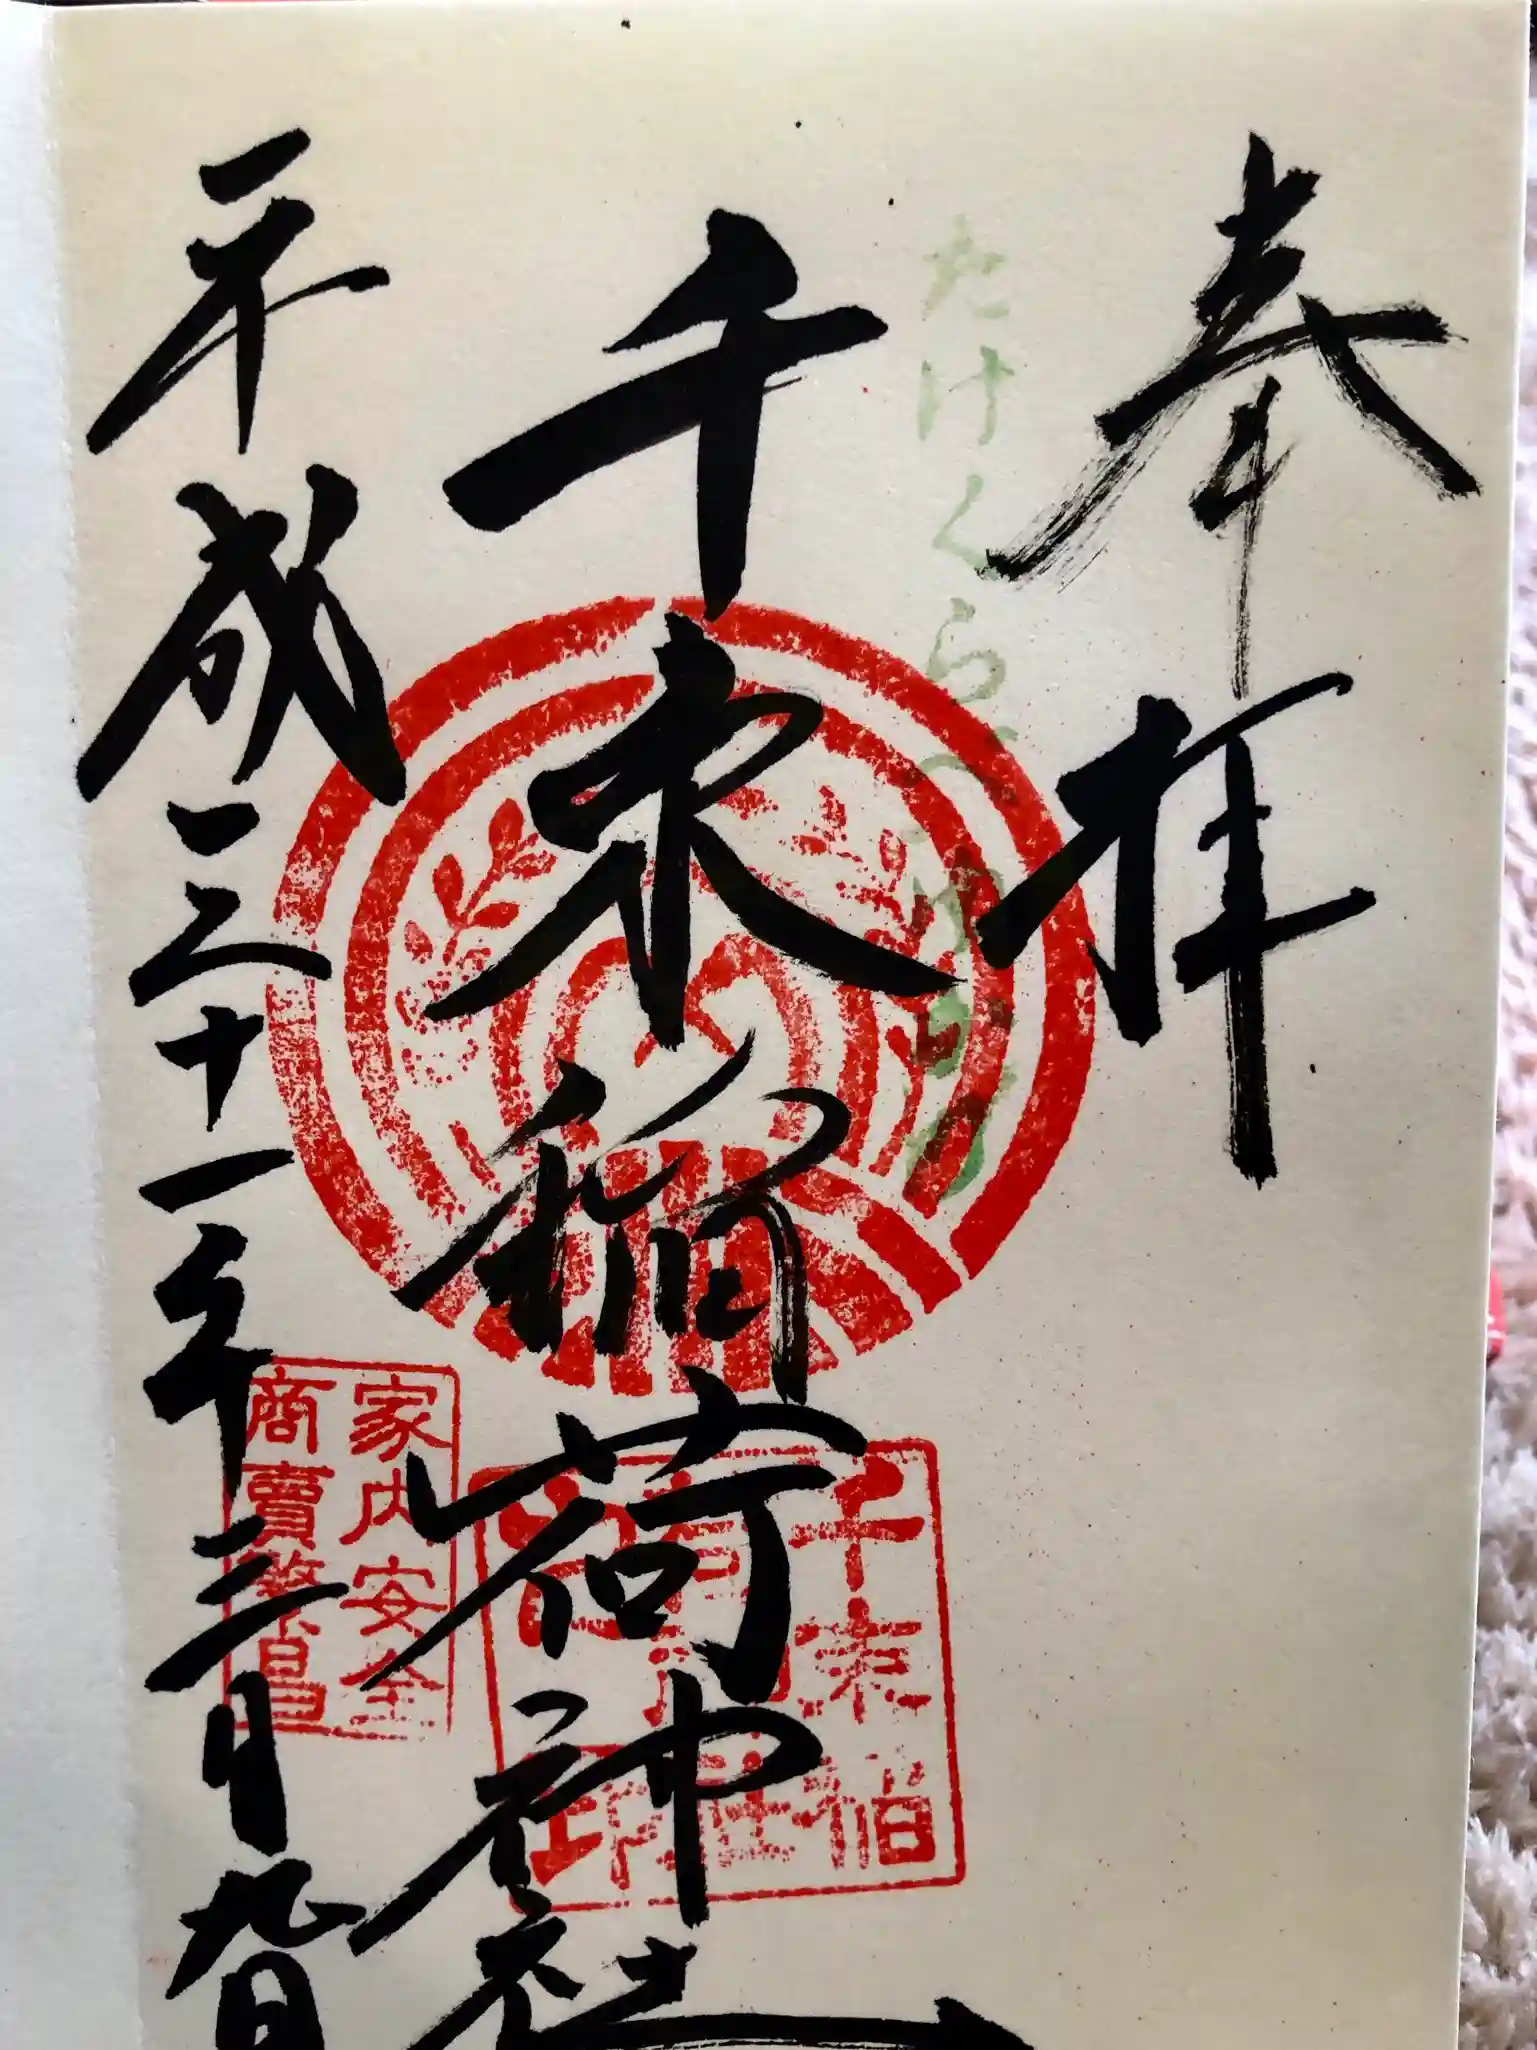 奉拝
たけくらべゆかりの
千束稲荷神社
平成三十一年三月九日
家内安全
商賣繁昌
千束稲
荷神社